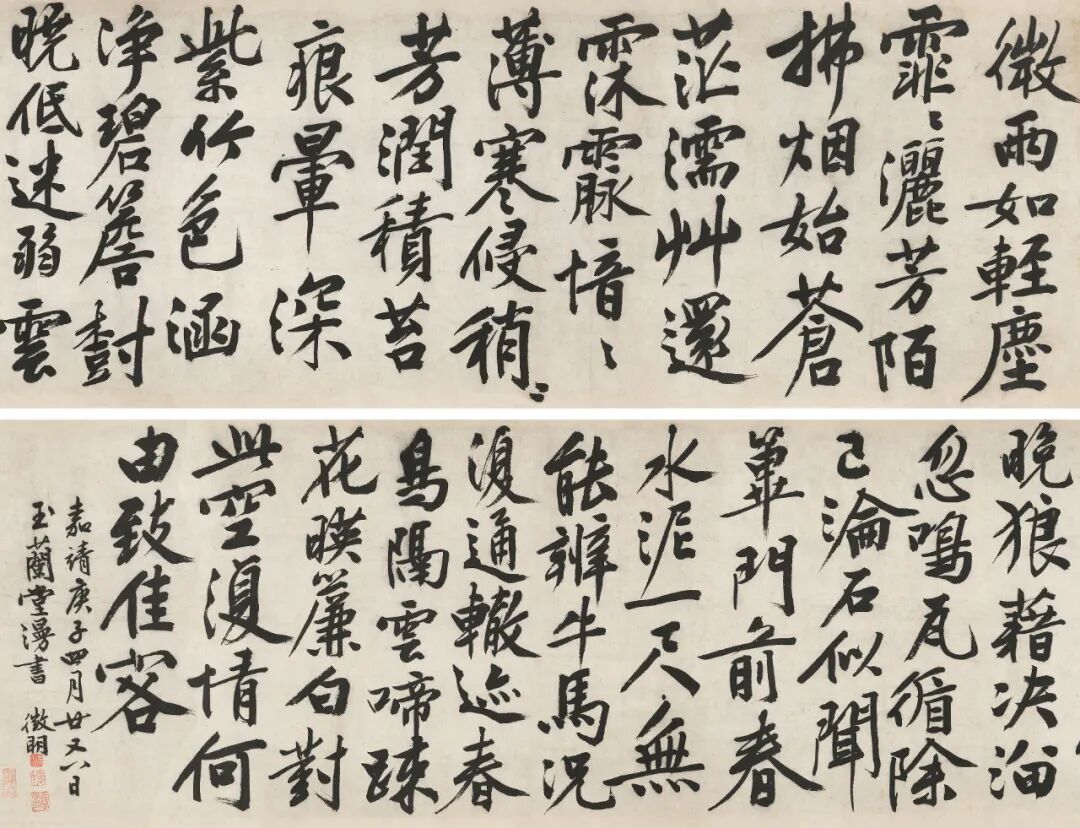 微雨如輕塵
霏〻灑芳陌
拂烟始蒼
茫濡艸還
霂霢愔〻
薄寒侵稍〻
芳潤積苔
痕暈深
紫竹色涵
净碧簷樹
晓低迷弱雲
晚狼藉決溜
忽鳴瓦循除
已淪石似聞
蓽門前春
水泥一尺無
能辨牛馬況
復通轍迹春
鳥隔雲啼踈
花暎簾白對
此空復情何
由致佳客
嘉靖庚子四月廿又八日
玉蘭堂漫書 徵明